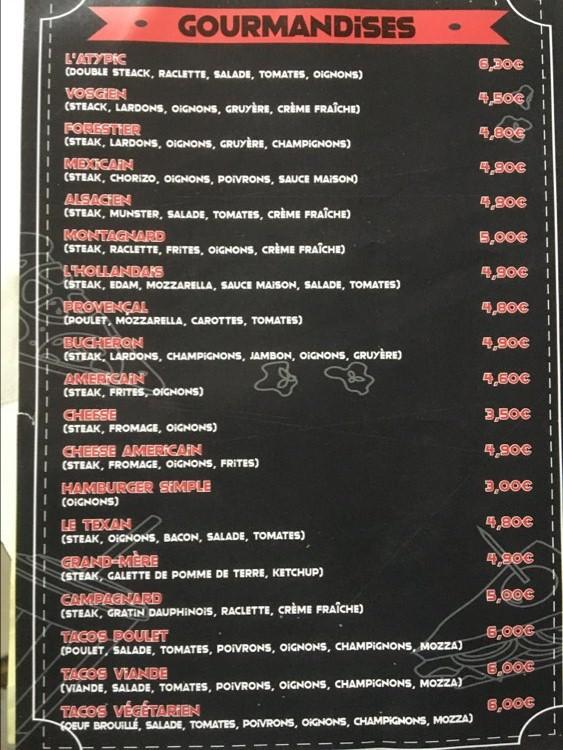 GOURMANDiSES
L'ATYPiC 6,30€
(DOUBLE STEACK, RACLETTE, SALADE, TOMATES, OiGNONS)
VOSGiEN 4,50€
(STEACK, LARDONS, OiGNONS, GRUYÈRE, CRÈME FRAÎCHE)
FORESTiER 4,80€
(STEAK, LARDONS, OiGNONS, GRUYÈRE, CHAMPiGNONS)
MEXiCAiN 4,90€
(STEAK, CHORiZO, OiGNONS, POiVRONS, SAUCE MAiSON)
ALSACiEN 4,90€
(STEAK, MUNSTER, SALADE, TOMATES, CRÈME FRAÎCHE)
MONTAGNARD 5,00€
(STEAK, RACLETTE, FRiTES, OiGNONS, CRÈME FRAÎCHE)
L'HOLLANDAiS 4,90€
(STEAK, EDAM, MOZZARELLA, SAUCE MAiSON, SALADE, TOMATES)
PROVENÇAL 4,80€
(POULET, MOZZARELLA, CAROTTES, TOMATES)
BUCHERON 4,90€
(STEAK, LARDONS, CHAMPiGNONS, JAMBON, OiGNONS, GRUYÈRE)
AMERiCAiN 4,60€
(STEAK, FRiTES, OiGNONS)
CHEESE 3,50€
(STEAK, FROMAGE, OiGNONS)
CHEESE AMERiCAiN 4,90€
(STEAK, FROMAGE, OiGNONS, FRiTES)
HAMBURGER SiMPLE 3,00€
(OiGNONS)
LE TEXAN 4,80€
(STEAK, OiGNONS, BACON, SALADE, TOMATES)
GRAND-MÈRE 4,90€
(STEAK, GALETTE DE POMME DE TERRE, KETCHUP)
CAMPAGNARD 5,00€
(STEAK, GRATiN DAUPHiNOiS, RACLETTE, CRÈME FRAÎCHE)
TACOS POULET 6,00€
(POULET, SALADE, TOMATES, POiVRONS, OiGNONS, CHAMPiGNONS, MOZZA)
TACOS ViANDE 6,00€
(ViANDE, SALADE, TOMATES, POiVRONS, OiGNONS, CHAMPiGNONS, MOZZA)
TACOS VÉGÉTARiEN 6,00€
(OEUF BROUiLLÉ, SALADE, TOMATES, POiVRONS, OiGNONS, CHAMPiGNONS, MOZZA)